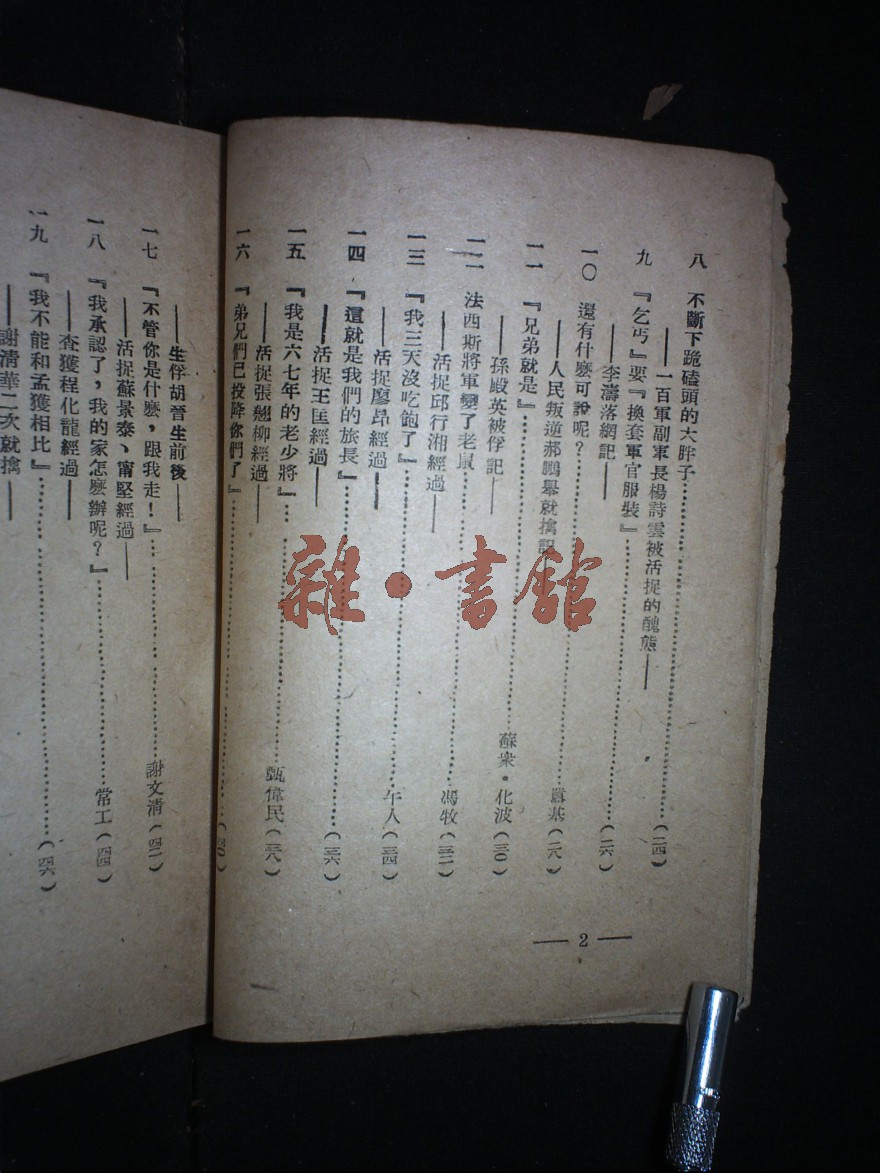 八　不斷下跪磕頭的大胖子……（二四）
——一百軍副軍長楊詩雲被活捉的醜態——
九　『乞丐』要『換套軍官服裝』……（二六）
——李濤落網記——
一〇　還有什麽可說呢？……基（二八）
——人民叛逆郝鵬舉就擒記
一一　『兄弟就是』……蘇衆・化波（三〇）
——孫殿英被俘記——
一二　法西斯將軍變了老鼠……馮牧（三二）
——活捉邱行湘經過——
一三　『我三天沒吃飽了』……午人（三四）
——活捉廖昂經過——
一四　『這就是我們的旅長』……（三六）
——活捉王匡經過——
一五　『我是六七年的老少將』……甄偉民（三八）
——活捉張翹柳經過——
一六　『弟兄們已投降你們了』……（四〇）
——生俘胡晉生前後——
一七　『不管你是什麽，跟我走！』……謝文清（四二）
——活捉蘇景泰、甯堅經過——
一八　『我承認了，我的家怎麽辦呢？』……常工（四四）
——查獲程化龍經過——
一九　『我不能和孟獲相比』……（四六）
——謝清華二次就擒——
— 2 —
雜・書館